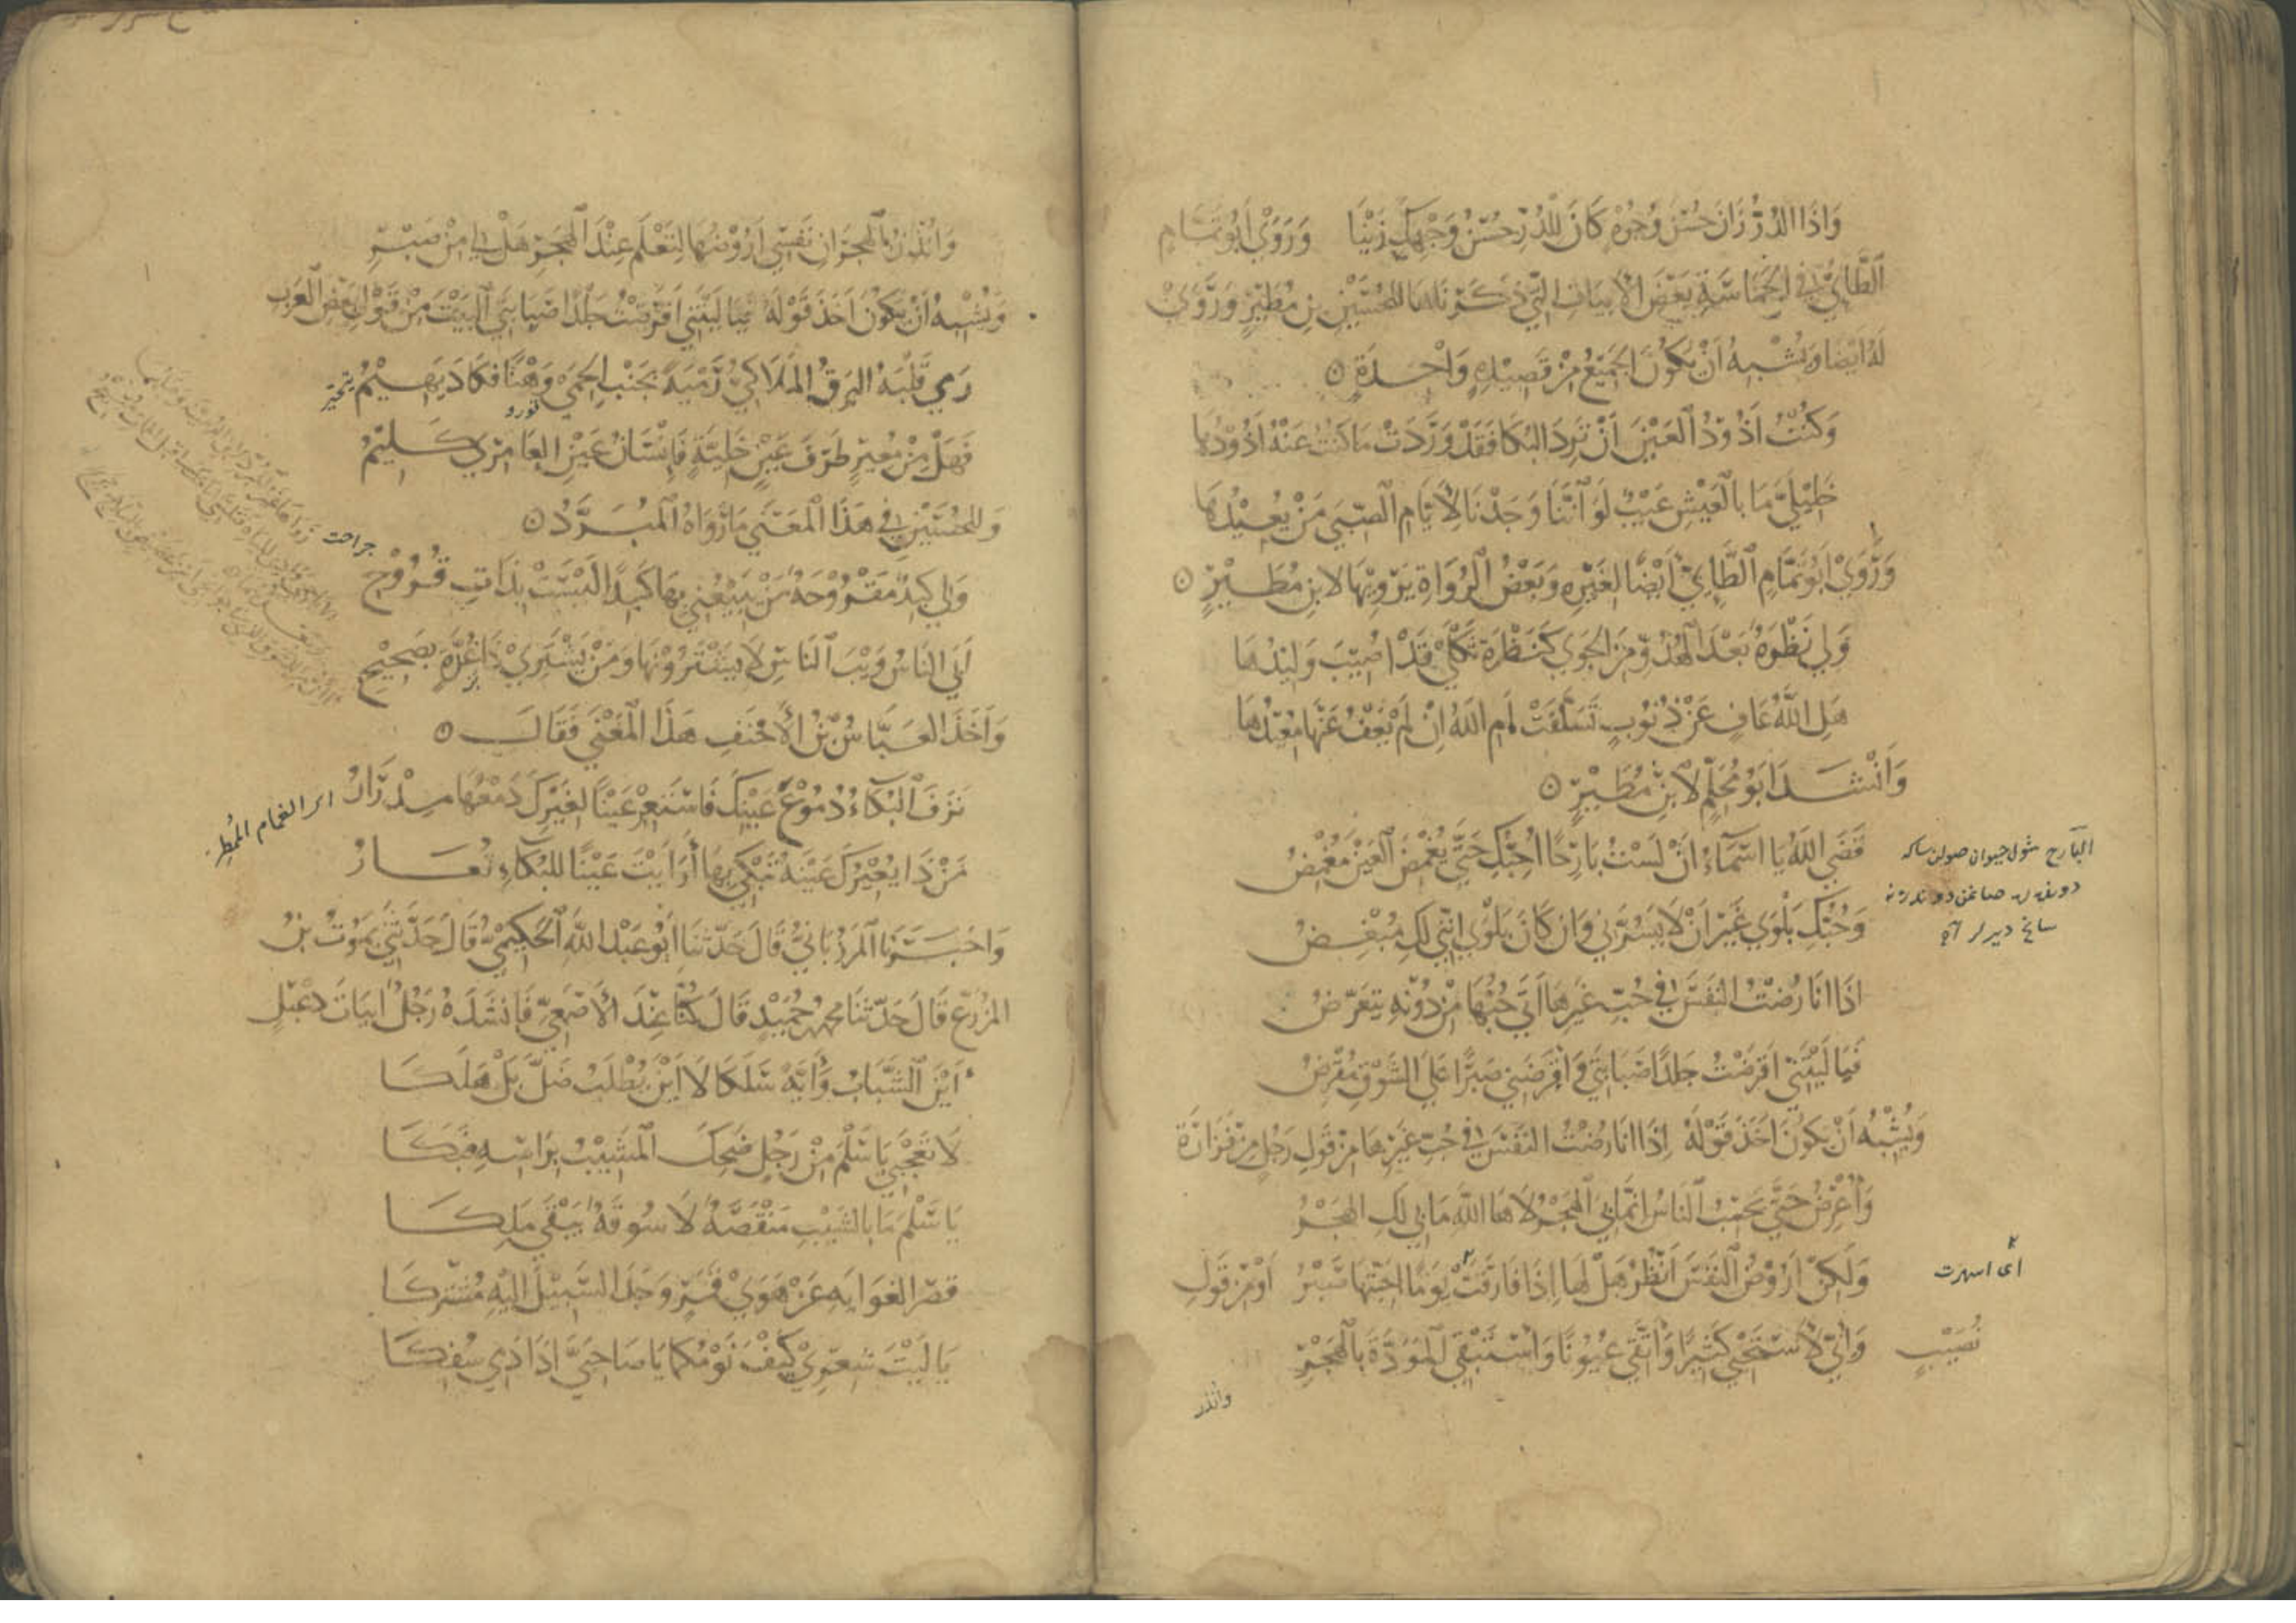 وَاِذَا الدُّرُّ زَانَ حُسْنَ وُجُوْهٍ كَانَ لِلدُّرِّ حُسْنُ وَجْهِكِ زَيْنَا وَرَوَيْ اَبُو تَمَّامٍ
الطَّائِيُّ فِي الْحَمَاسَةِ بَعْضَ الْاَبْيَاتِ الَّتِي ذَكَرْنَاهَا لِلْحُسَيْنِ بْنِ مُطَيْرٍ وَرَوَيْ
لَهُ اَيْضًا وَيُشْبِهُ اَنْ يَكُوْنَ الْجَمِيْعُ مِنْ قَصِيْدَةٍ وَاحِدَةٍ
وَكُنْتُ اَذُوْدُ الْعَيْنَ اَنْ تَرِدَ الْبُكَا فَقَدْ وَرَدَتْ مَا كُنْتُ عَنْهُ اَذُوْدُهَا
خَلِيْلَيَّ مَا بِالْعَيْشِ عَيْبٌ لَوْ اَنَّنَا وَجَدْنَا لِاَيَّامِ الصِّبَى مَنْ يُعِيْدُهَا
وَرَوَيْ اَبُو تَمَّامٍ الطَّائِيُّ اَيْضًا لِغَيْرِهِ وَبَعْضُ الرُّوَاةِ يَرْوِيْهَا لِابْنِ مُطَيْرٍ
وَلِي نَظْرَةٌ بَعْدَ الْهُدُوِّ مِنَ الْجَوَي كَنَظْرَةِ ثَكْلَي قَدْ اُصِيْبَ وَلِيْدُهَا
هَلِ اللّٰهُ عَافٍ عَنْ ذُنُوْبٍ تَسَلَّفَتْ اَمِ اللّٰهُ اِنْ لَمْ يَعْفُ عَنْهَا مُعِيْدُهَا
وَاَنْشَدَ اَبُو مُحَلِّمٍ لِابْنِ مُطَيْرٍ
قَضَي اللّٰهُ يَا اَسْمَاءُ اَنْ لَسْتُ بَارِحًا اُحِبُّكِ حَتَّي يُغْمِضَ الْعَيْنَ مُغْمِضُ
وَحُبُّكِ بَلْوَي غَيْرَ اَنْ لَا يَسُرُّنِي وَاِنْ كَانَ بَلْوَي اِنَّنِي لَكِ مُبْغِضُ
اِذَا اَنَا رُضْتُ النَّفْسَ فِي حُبِّ غَيْرِهَا اَتَي حُبُّهَا مِنْ دُوْنِهِ يَتَعَرَّضُ
فَيَا لَيْتَنِي اَقْرَضْتُ جَلْدًا صَبَابَتِي وَاَقْرَضَنِي صَبْرًا عَلَي الشَّوْقِ مُقْرِضُ
وَيُشْبِهُ اَنْ يَكُوْنَ اَخَذَ قَوْلَهُ اِذَا اَنَا رُضْتُ النَّفْسَ فِي حُبِّ غَيْرِهَا مِنْ قَوْلِ رَجُلٍ مِنْ فَزَارَةَ
وَاُعْرِضُ حَتَّي يَحْسِبُ النَّاسُ اَنَّمَا بِيَ الْهَجْرُ لَا هَا اللّٰهِ مَا بِي لَكِ الْهَجْرُ
وَلٰكِنْ اَرُوْضُ النَّفْسَ اَنْظُرُ هَلْ لَهَا اِذَا فَارَقَتْ يَوْمًا اَحِبَّتَهَا صَبْرُ اَوْ مِنْ قَوْلِ
نُصَيْبٍ وَاِنِّي لَاَسْتَحْيِي كَثِيْرًا وَاَتَّقِي عُيُوْنًا وَاَسْتَبْقِي الْمَوَدَّةَ بِالْهَجْرِ
وانذر
البارح
اى
وَاُنْذِرُ بِالْهِجْرَانِ نَفْسِي اَرُوْضُهَا لِتَعْلَمَ عِنْدَ الْهَجْرِ هَلْ لِي مِنْ صَبْرِ
وَيُشْبِهُ اَنْ يَكُوْنَ اَخَذَ قَوْلَهُ فَيَا لَيْتَنِي اَقْرَضْتُ جَلْدًا صَبَابَتِي الْبَيْتَ مِنْ قَوْلِ بَعْضِ الْعَرَبِ
رَمَي قَلْبَهُ الْبَرْقُ الْمُلَالِيُّ رَمْيَةً بِجَنْبِ الْحِمَي وَهْنًا فَكَادَ يَهِيْمُ
فَهَلْ مِنْ مُعِيْرٍ طَرْفَ عَيْنٍ خَلِيَّةٍ فَاِنْسَانُ عَيْنِ الْعَامِرِيِّ كَلِيْمُ
وَلِلْحُسَيْنِ فِي هٰذَا الْمَعْنَي مَا رَوَاهُ الْمُبَرَّدُ
وَلِي كَبِدٌ مَقْرُوْحَةٌ مَنْ يَبِيْعُنِي بِهَا كَبِدًا لَيْسَتْ بِذَاتِ قُرُوْحِ
اَبَي النَّاسُ وَيْبَ النَّاسِ لَا يَشْتَرُوْنَهَا وَمَنْ يَشْتَرِي ذَا عُرَّةٍ بِصَحِيْحِ
وَاَخَذَ الْعَبَّاسُ بْنُ الْاَحْنَفِ هٰذَا الْمَعْنَي فَقَالَ
نَزَفَ الْبُكَاءُ دُمُوْعَ عَيْنِكَ فَاسْتَعِرْ عَيْنًا لِغَيْرِكَ دَمْعُهَا مِدْرَارُ
مَنْ ذَا يُعِيْرُكَ عَيْنَهُ تَبْكِي بِهَا اَرَاَيْتَ عَيْنًا لِلْبُكَاءِ تُعَارُ
وَاَخْبَرَنَا الْمَرْزُبَانِيُّ قَالَ حَدَّثَنَا اَبُو عَبْدِ اللّٰهِ الْحَكِيْمِيُّ قَالَ حَدَّثَنِي يَمُوْتُ بْنُ
الْمُزَرَّعِ قَالَ حَدَّثَنَا مُحَمَّدُ حُمَيْدٍ قَالَ كُنَّا عِنْدَ الْاَصْمَعِيِّ فَاَنْشَدَهُ رَجُلٌ اَبْيَاتَ دِعْبِلٍ
اَيْنَ الشَّبَابُ وَاَيَّةً سَلَكَا لَا اَيْنَ يُطْلَبُ ضَلَّ بَلْ هَلَكَا
لَا تَعْجَبِي يَا سَلْمُ مِنْ رَجُلٍ ضَحِكَ الْمَشِيْبُ بِرَاْسِهِ فَبَكَا
يَا سَلْمُ مَا بِالشَّيْبِ مَنْقَصَةٌ لَا سُوْقَةً يَبْقَي مَلِكَا
قَصَرَ الْغَوَايَةَ عَنْ هَوَي قَمَرٍ وَجَدَ السَّبِيْلَ اِلَيْهِ مُشْتَرَكَا
يَا لَيْتَ شِعْرِي كَيْفَ نَوْمُكُمَا يَا صَاحِبَيَّ اِذَا دَمِي سُفِكَا
جراحت
الغمام الممطر